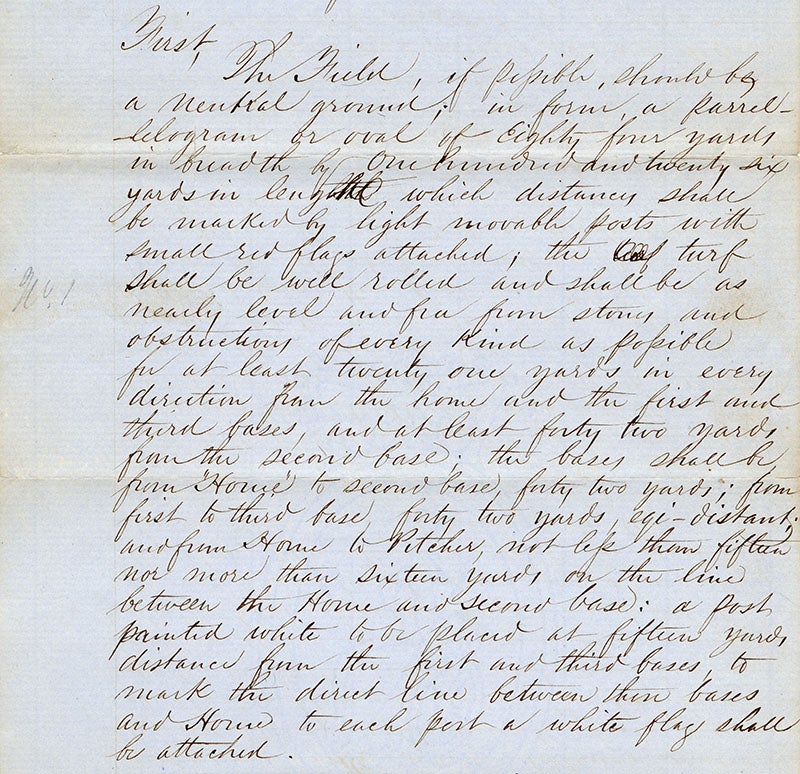 First,
The Field, if possible, should be
a neutral ground; in form, a parrel-
lelogram or oval of Eighty four yards
in breadth by One hundred and twenty six
yards in length which distances shall
be marked by light movable posts with
small red flags attached; the turf
shall be well rolled and shall be as
No. 1
nearly level and free from stones and
obstructions of every kind as possible
for at least twenty one yards in every
direction from the home and the first and
third bases, and at least forty two yards
from the second base; the bases shall be
from "Home" to second base, forty two yards; from
first to third base, forty two yards, eqi-distant;
and from Home to Pitcher, not less than fifteen
nor more than sixteen yards on the line
between the Home and second base: a post
painted white to be placed at fifteen yards
distance from the first and third bases, to
mark the direct line between those bases
and Home to each post a white flag shall
be attached.